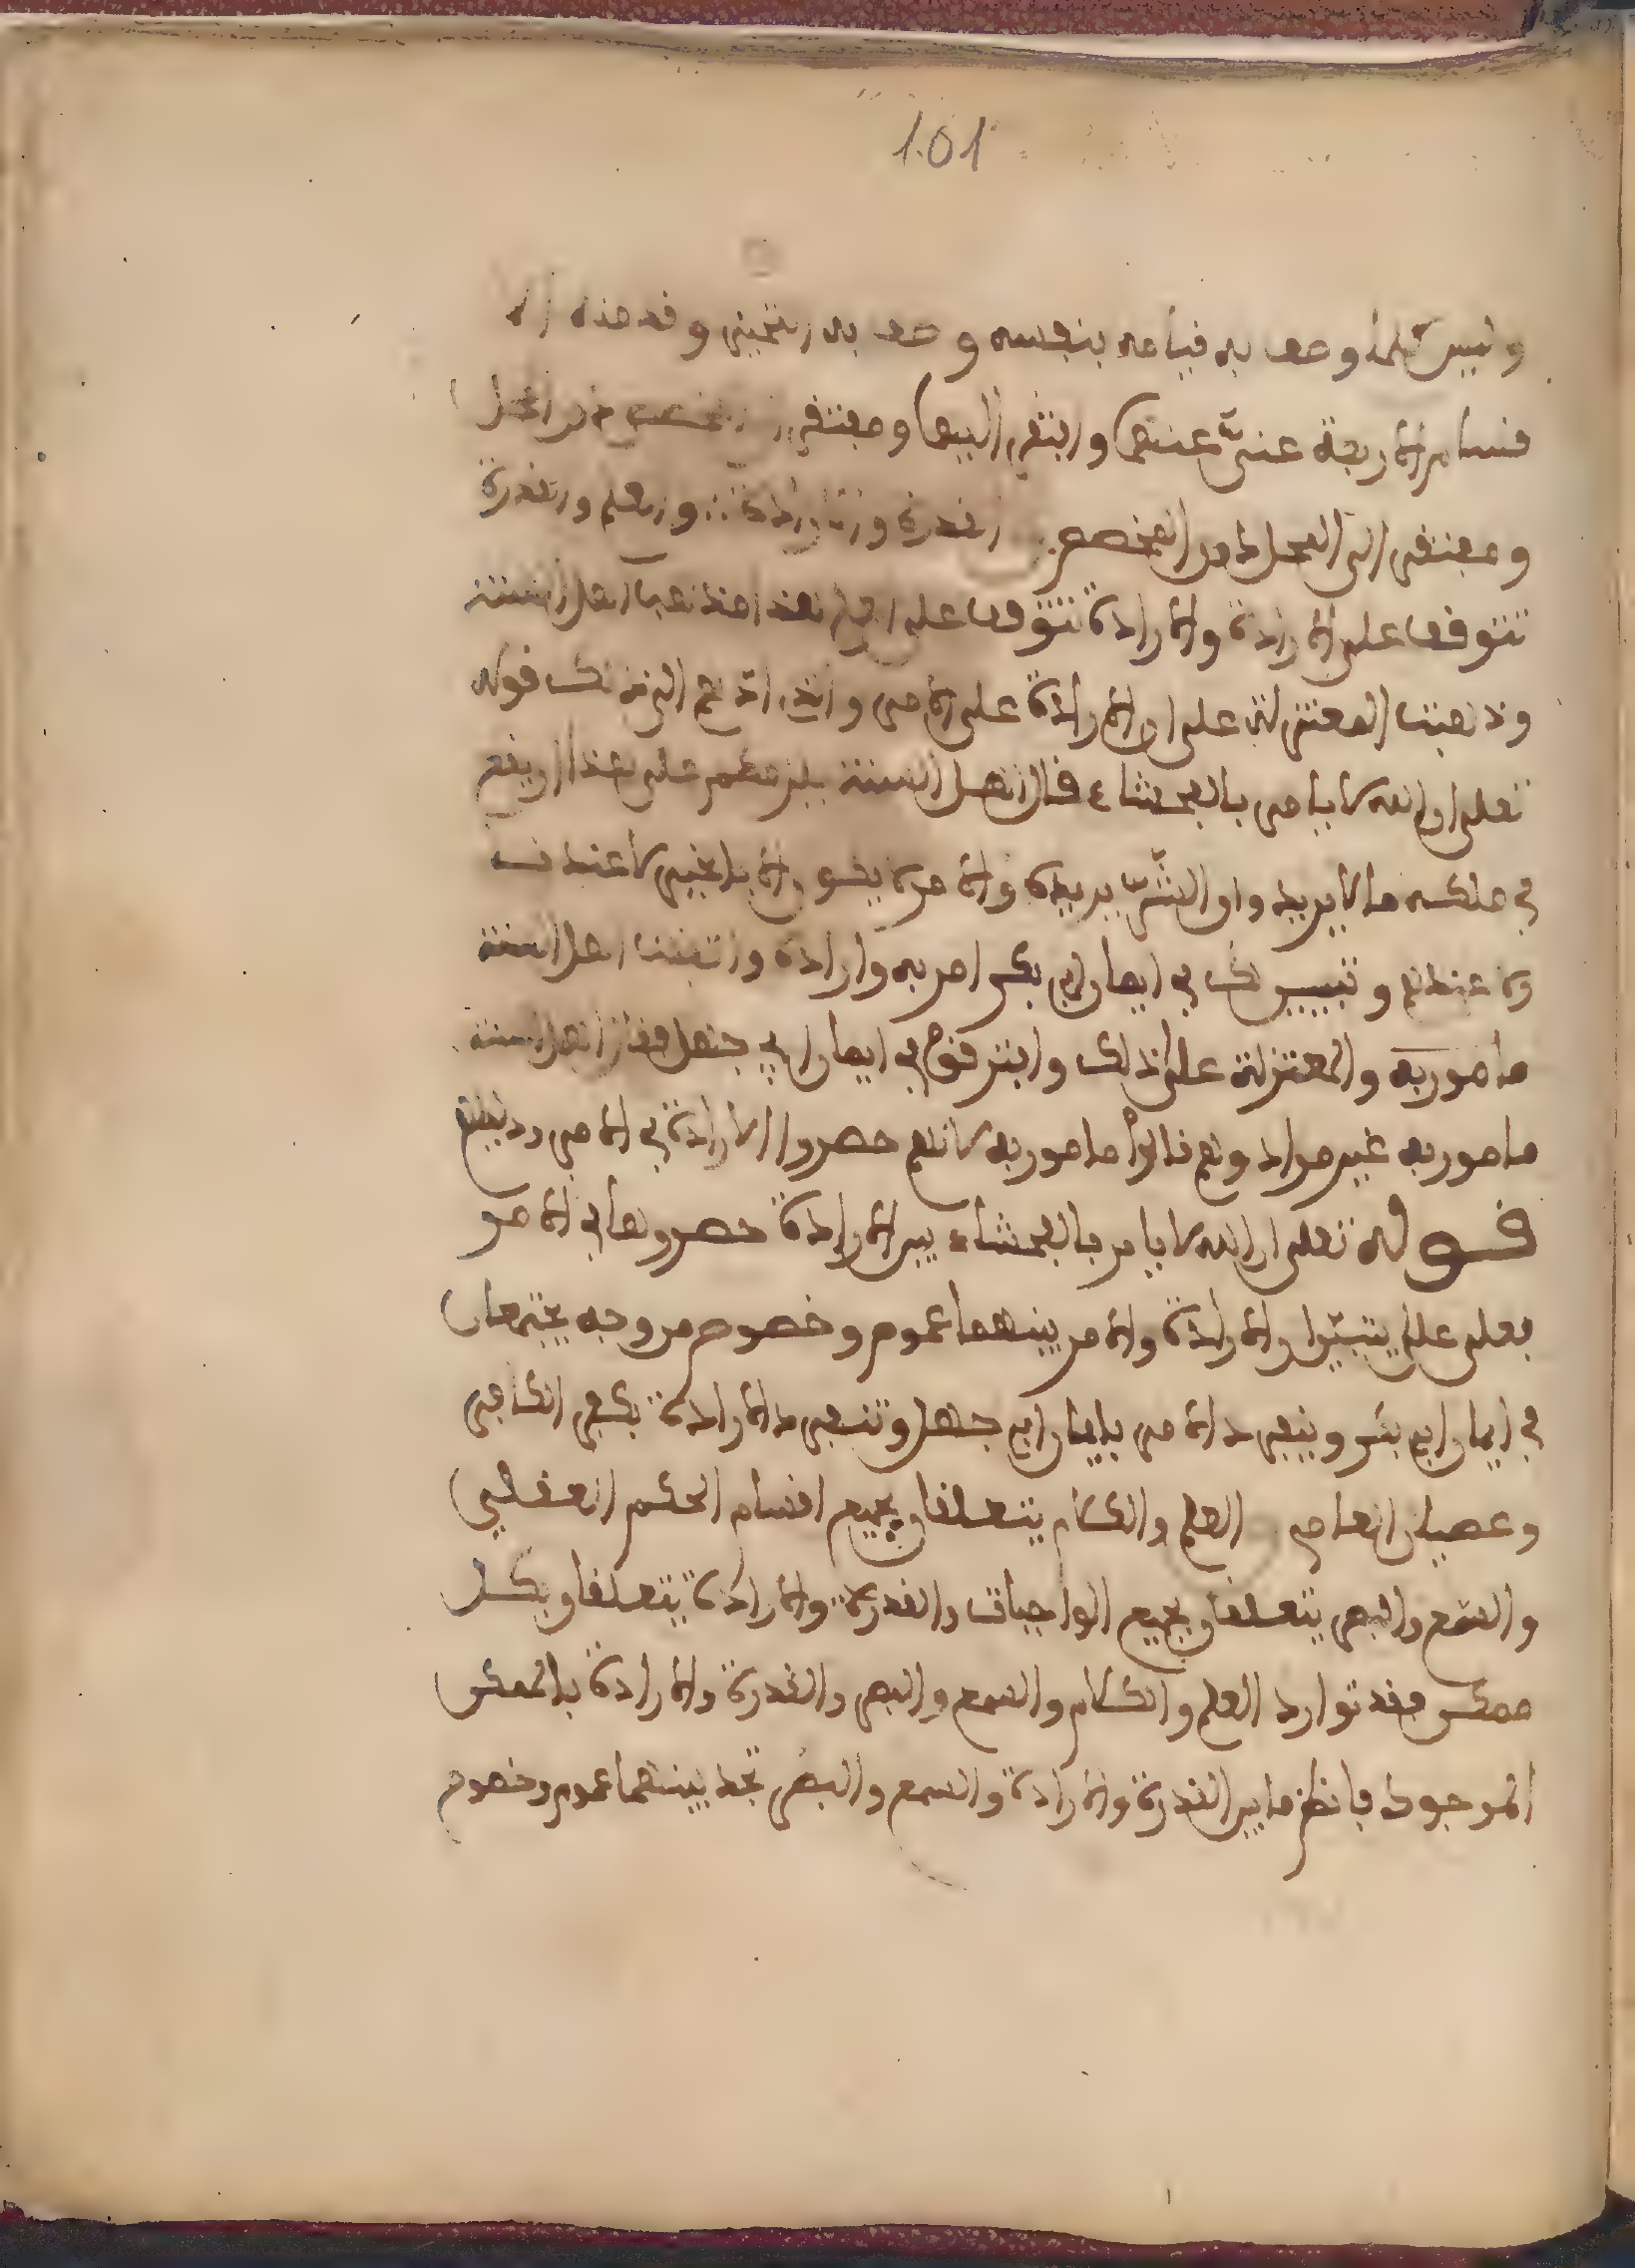 101
وليس كلما وصف به قيامه بنفسه وصف به
فسام الاربعة غني عنهما وافتقر اليهما ومفتقر المحل
ومفتقر الى المحل دون المخصص والعلم والقدرة
تتوقف على الارادة والارادة تتوقف على العلم هذا مذهب اهل السنة
وذهبت المعتزلة على ان الارادة على الامر والذي اداهم الى ذلك قوله
تعلى ان الله لا يامر بالفحشاء فال اهل السنة يلزمكم على هذا ان يقع
في ملكه ما لا يريد وان الشر يريده والامر
ولا عندهم وتبيين لك في ايمان ابي بكر امر به واراده واتفقت اهل السنة
مامور به والمعتزلة على ذلك وافترقوا في ايمان ابي جهل فقال اهل السنة
مامور به غير مراد وهم قالوا مامور به لانهم حصروا الارادة في الامر ودليلهم
قوله تعلى ان الله لا يامر بالفحشاء بين الارادة حصروها في الامر
فعلى يتبين ان الارادة والامر بينهما عموم وخصوص من وجه يجتمعان
في ايمان ابي بكر وينفرد الامر بايمان ابي جهل وتنفرد الارادة بكفر الكافر
وعصيان العاصي العلم والكلام يتعلقان بجميع اقسام الحكم العقلي
والسمع والبصر يتعلقان بجميع الواجبات والقدرة والارادة يتعلقان بكل
ممكن فقد توارد العلم والكلام والسمع والبصر والقدرة والارادة بالممكن
الموجود فانظر ما بين القدرة والارادة والسمع والبصر تجد بينهما عموم وخصوص